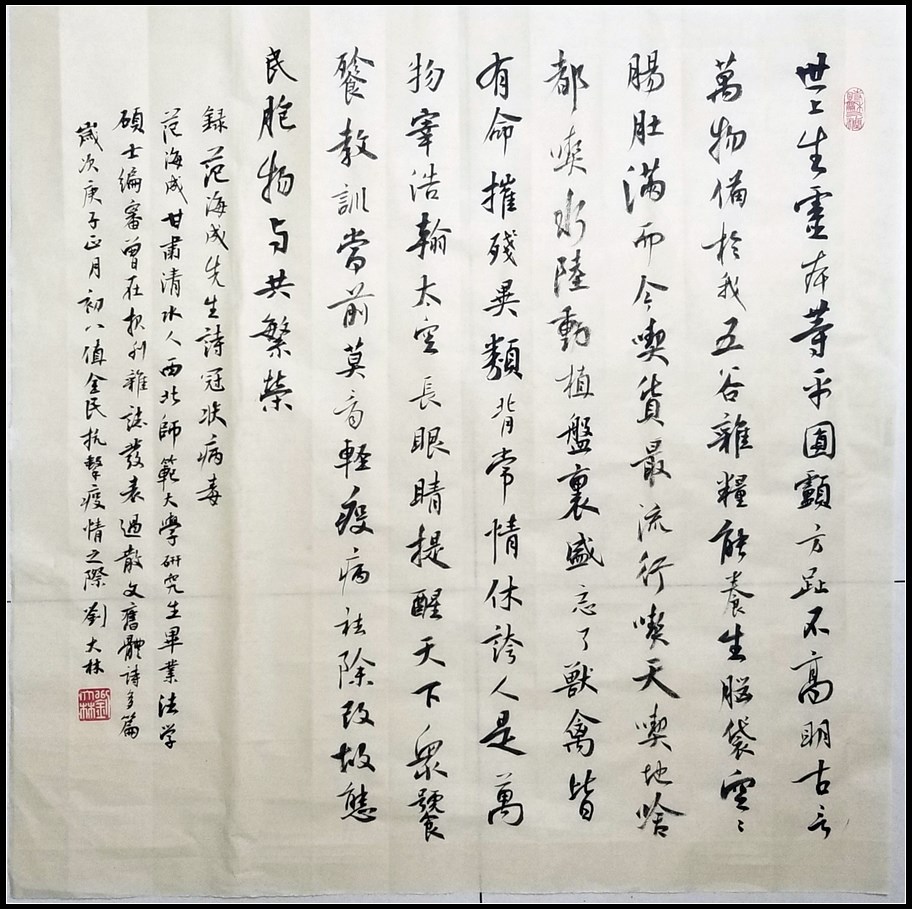 世上生靈本等平圓顱方趾不高明古言
萬物備於我五谷雜糧能養生腦袋空〻
腸肚滿而今喫貨最流行喫天喫地啥
都喫水陸動植盤裏盛忘了獸禽皆
有命摧殘異類背常情休誇人是萬
物宰浩瀚太空長眼睛提醒天下眾饕
餮教訓當前莫看輕疫病祛除改故態
民胞物与共繁榮
録范海成先生詩冠狀病毒
范海成甘肅清水人西北師範大學研究生畢業法学
碩士編審曾在报刋雜誌發表過散文舊體詩多篇
歲次庚子正月初八值全民抗擊疫情之際劉大林
劉大林